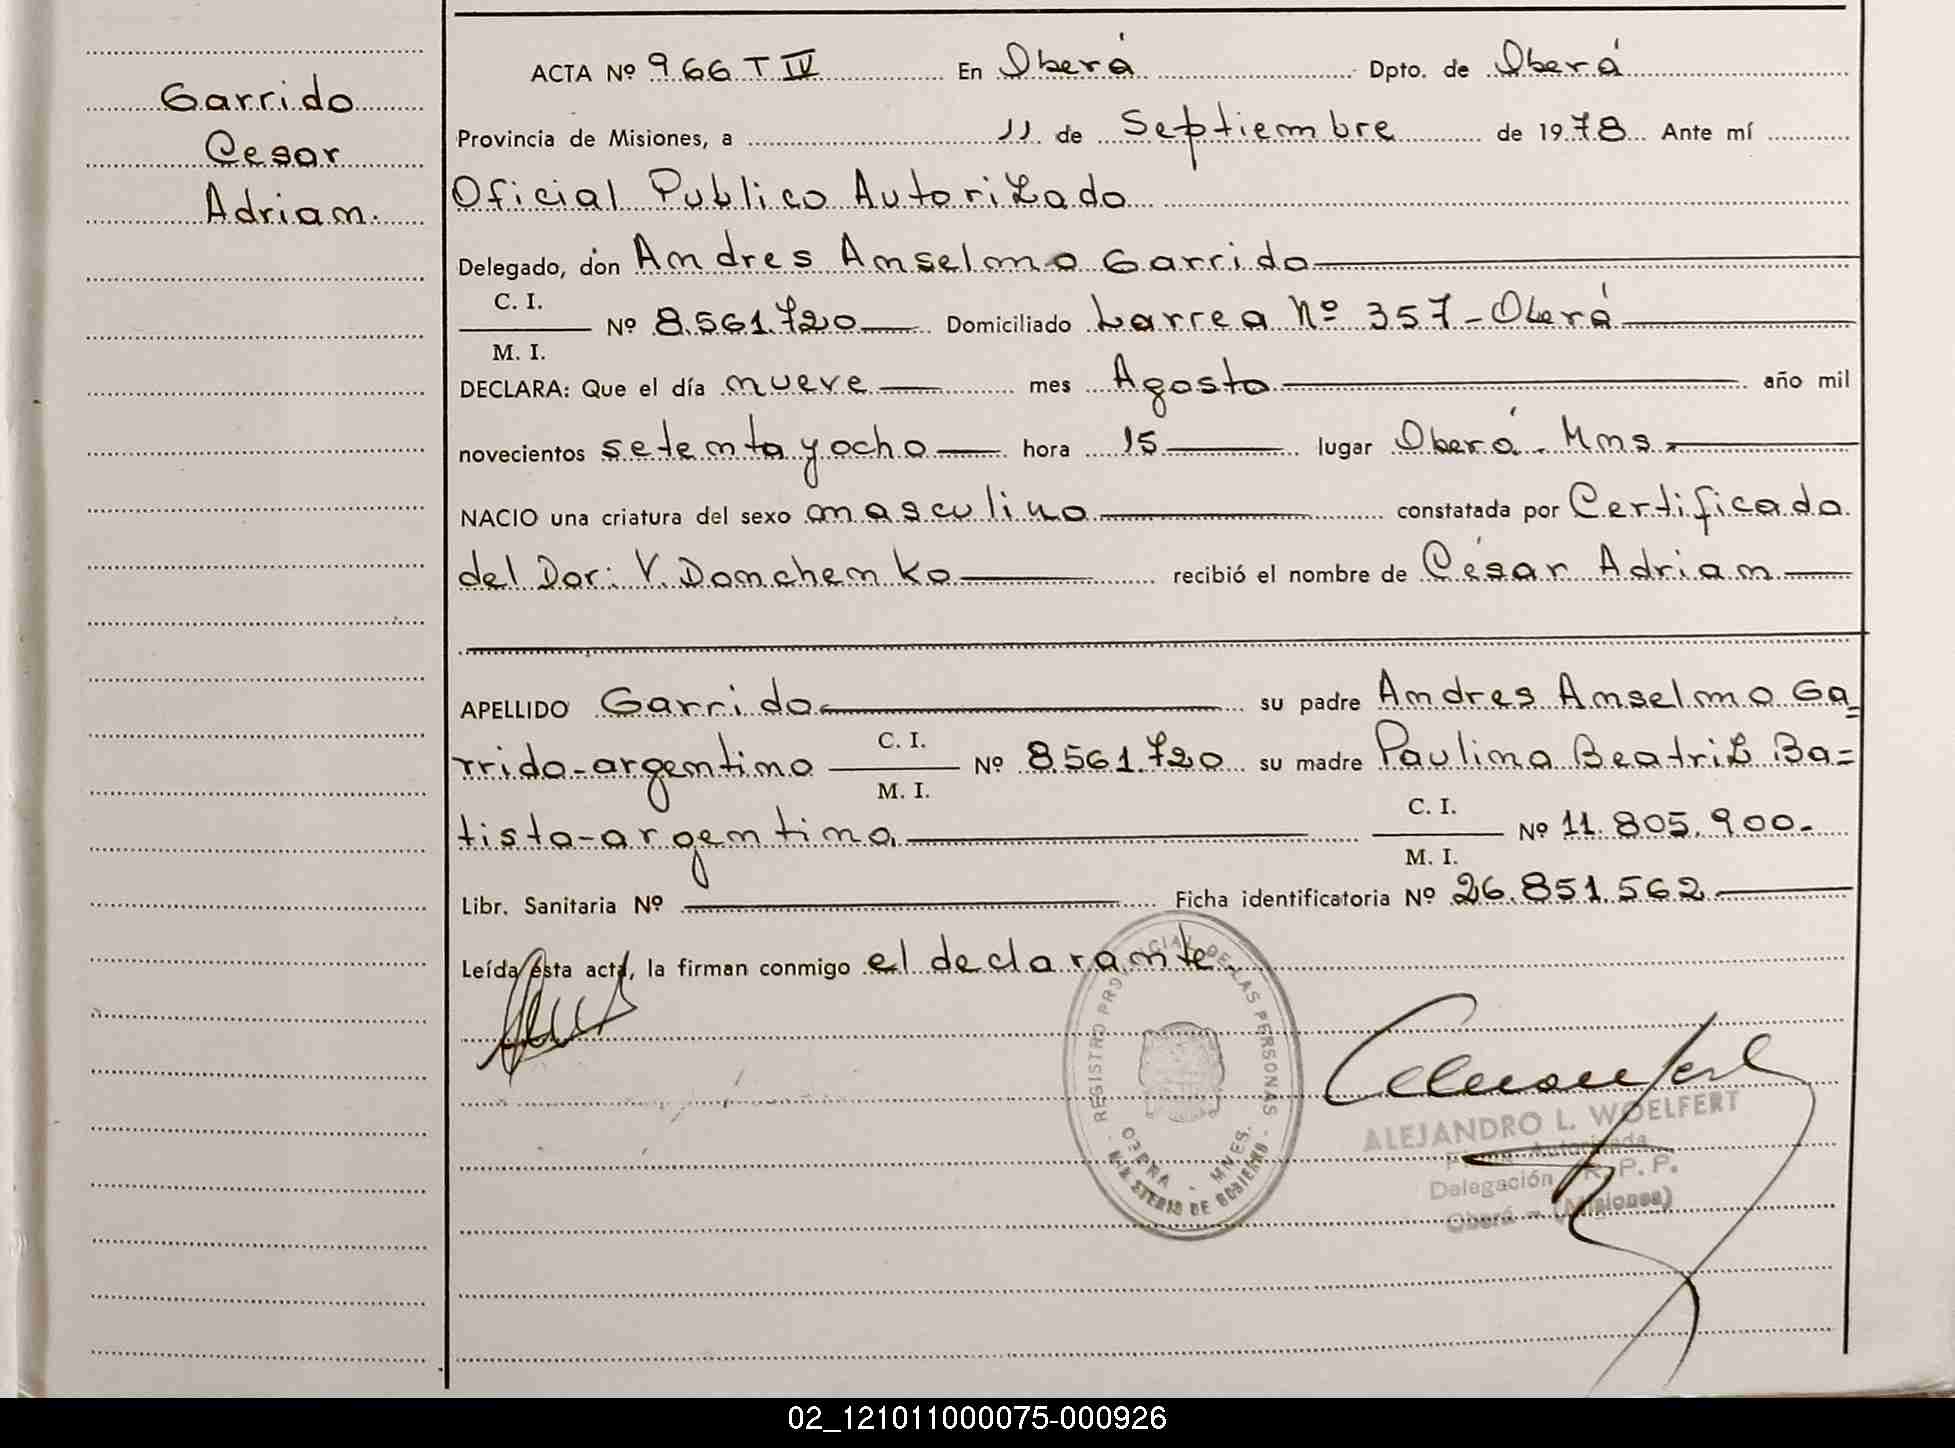 Garrido
Cesar
Adrian.
ACTA Nº 966 T IV En Oberá Dpto. de Oberá
Provincia de Misiones, a 11 de Septiembre de 1978 Ante mí
Oficial Publico Autorizado
Delegado, don Andres Anselmo Garrido
C. I.
Nº 8.561.720 Domiciliado Larrea Nº 357 - Oberá
M. I.
DECLARA: Que el día nueve mes Agosto año mil
novecientos setenta y ocho hora 15 lugar Oberá - Mns.
NACIO una criatura del sexo masculino constatada por Certificado
del Dor: V. Domchenko recibió el nombre de César Adrian
APELLIDO Garrido su padre Andres Anselmo Ga=
C. I.
rrido-argentino Nº 8.561.720 su madre Paulina Beatriz Ba=
M. I.
C. I.
tista-argentina. Nº 11.805.900.
M. I.
Libr. Sanitaria Nº Ficha identificatoria Nº 26.851.562
Leída esta acta, la firman conmigo el declarante.
REGISTRO PROVINCIAL DE LAS PERSONAS
OBERA - MNES.
MINISTERIO DE GOBIERNO
ALEJANDRO L. WOELFERT
Autorizada
Delegación R. P. P.
Oberá - (Misiones)
02_121011000075-000926